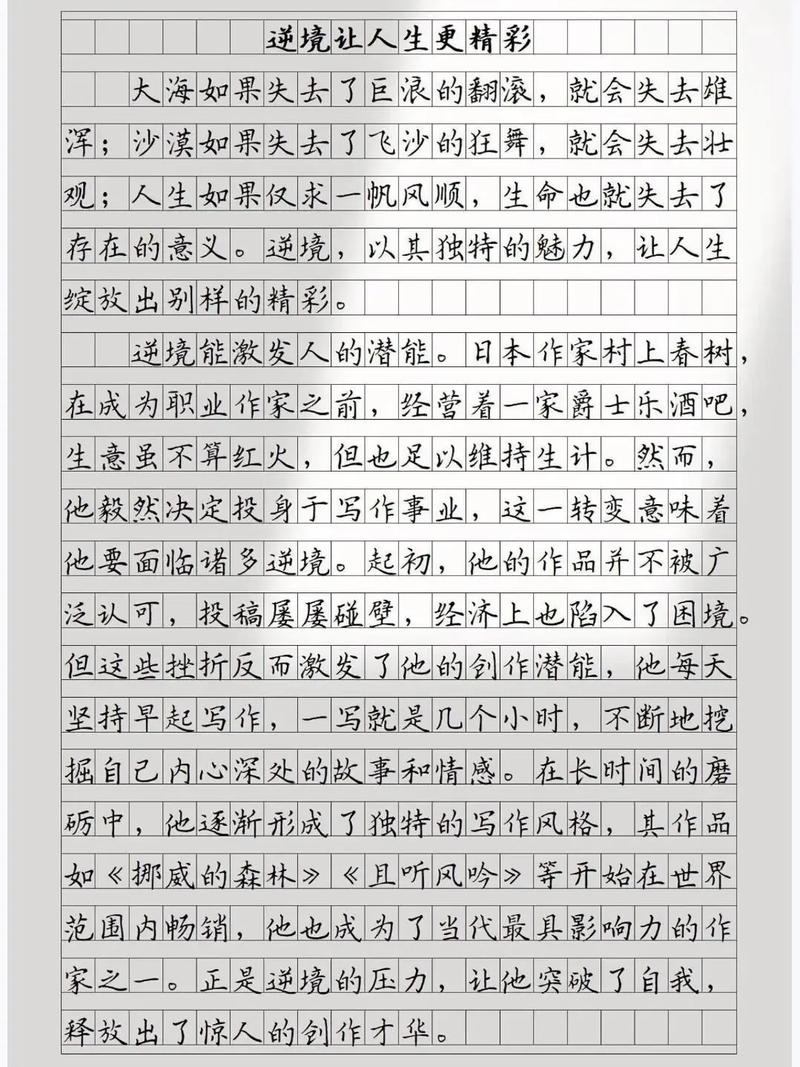 逆境让人生更精彩
大海如果失去了巨浪的翻滚，就会失去雄
浑；沙漠如果失去了飞沙的狂舞，就会失去壮
观；人生如果仅求一帆风顺，生命也就失去了
存在的意义。逆境，以其独特的魅力，让人生
绽放出别样的精彩。
逆境能激发人的潜能。日本作家村上春树，
在成为职业作家之前，经营着一家爵士乐酒吧，
生意虽不算红火，但也足以维持生计。然而，
他毅然决定投身于写作事业，这一转变意味着
他要面临诸多逆境。起初，他的作品并不被广
泛认可，投稿屡屡碰壁，经济上也陷入了困境。
但这些挫折反而激发了他的创作潜能，他每天
坚持早起写作，一写就是几个小时，不断地挖
掘自己内心深处的故事和情感。在长时间的磨
砺中，他逐渐形成了独特的写作风格，其作品
如《挪威的森林》《且听风吟》等开始在世界
范围内畅销，他也成为了当代最具影响力的作
家之一。正是逆境的压力，让他突破了自我，
释放出了惊人的创作才华。